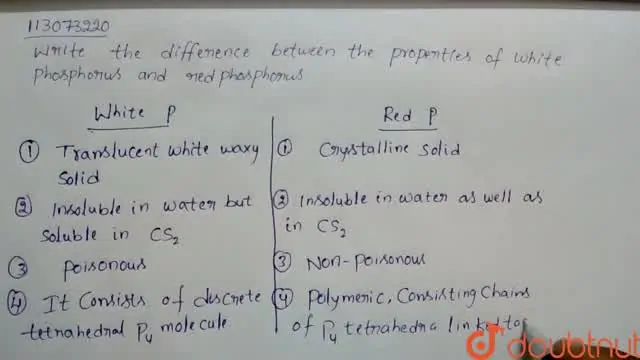 113073220
Write the difference between the properties of white
phosphorus and red phosphorus
White P
Red P
① Translucent white waxy
solid
② Insoluble in water but
soluble in CS2
③ Poisonous
④ It Consists of discrete
tetrahedral P4 molecule
① Crystalline Solid
② Insoluble in water as well as
in CS2
③ Non-poisonous
④ Polymeric, Consisting Chains
of P4 tetrahedra linked to
doubtnut